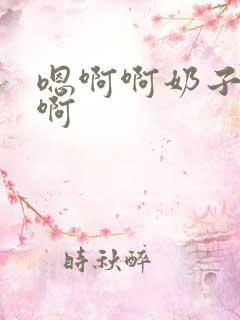 嗯啊啊奶子
啊
時秋醉